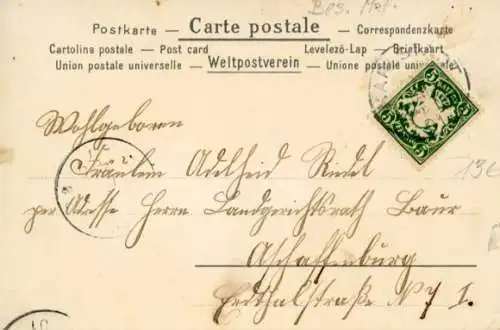 Postkarte — Carte postale — Correspondenzkarte
Cartolina postale — Post card Levelezö-Lap — Briefkaart
Union postale universelle — Weltpostverein — Unione postale universale
5
Wohlgeboren
Fräulein Adelheid Riedel
per Adresse Herrn Landgerichtsrath Baur
Aschaffenburg
N 7 I.
13€